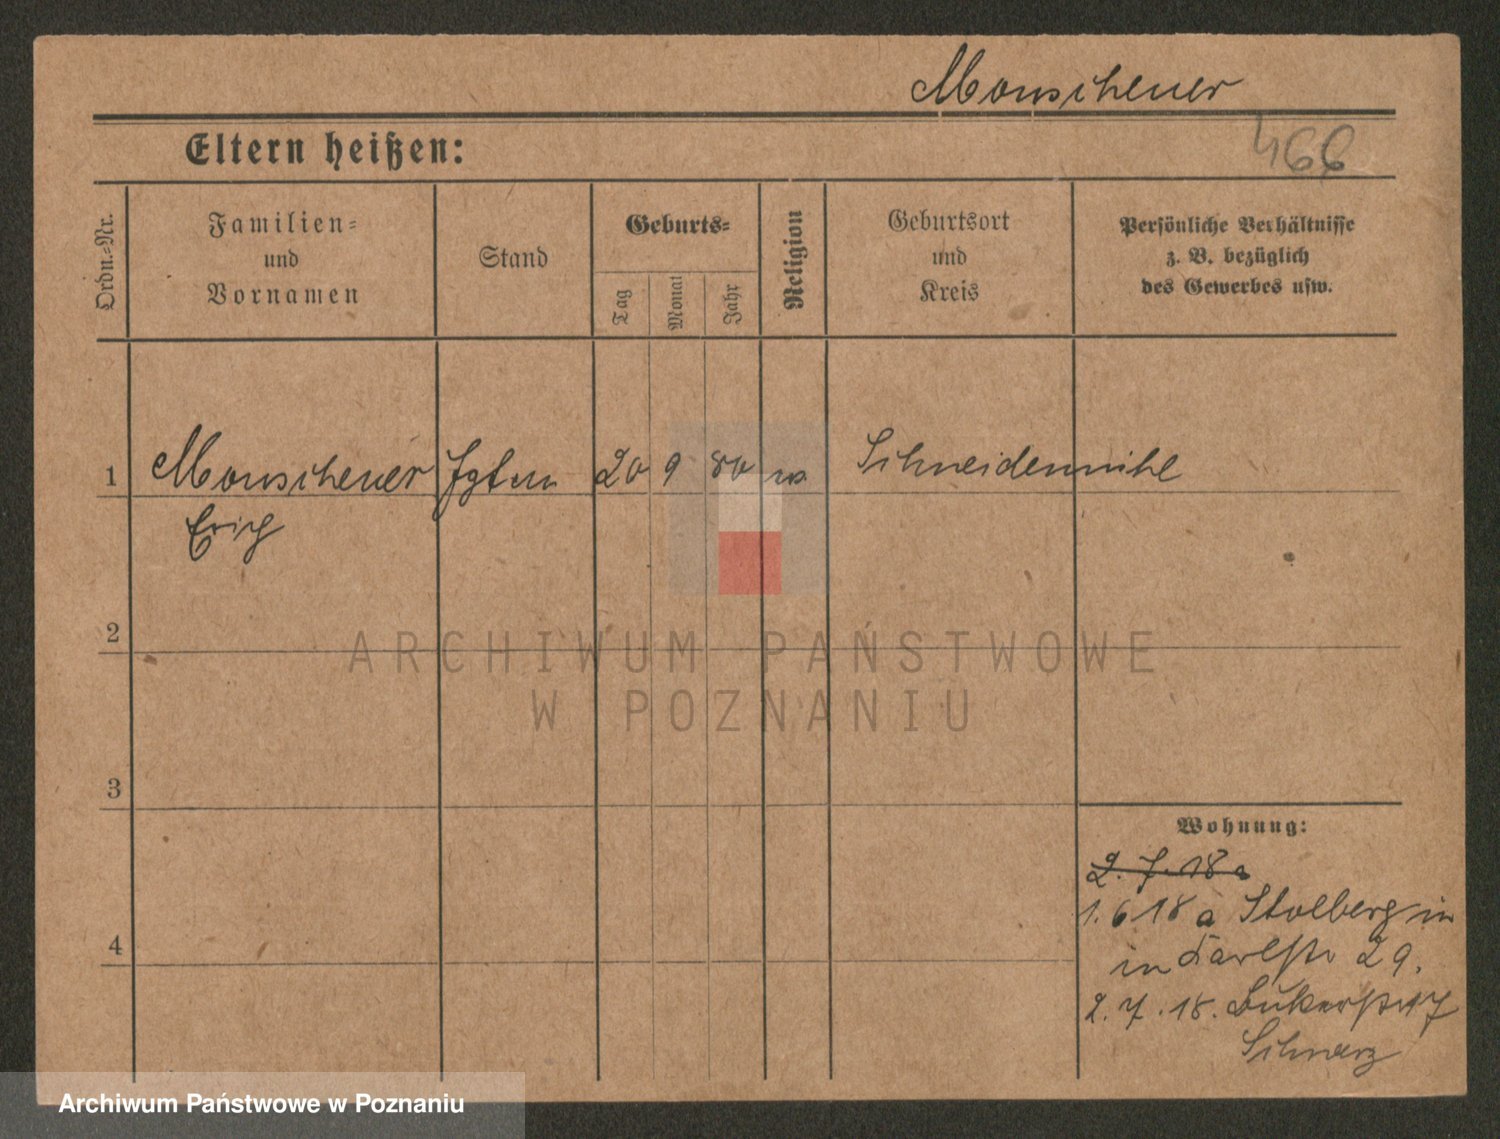 Monscheuer
466
Eltern heißen:
Ordn.-Nr.
Familien-
und
Vornamen
Stand
Geburts-
Tag
Monat
Jahr
Religion
Geburtsort
und
Kreis
Persönliche Verhältnisse
z. B. bezüglich
des Gewerbes usw.
1 Monscheuer 20 9 80 Schneidemühl
Erich
2
3
4
ARCHIWUM PAŃSTWOWE
W POZNANIU
Wohnung:
2. 7. 18 a
1. 6 18 a Stolberg in
in Karlstr 29.
2. 7. 18.
Schwarz
Archiwum Państwowe w Poznaniu